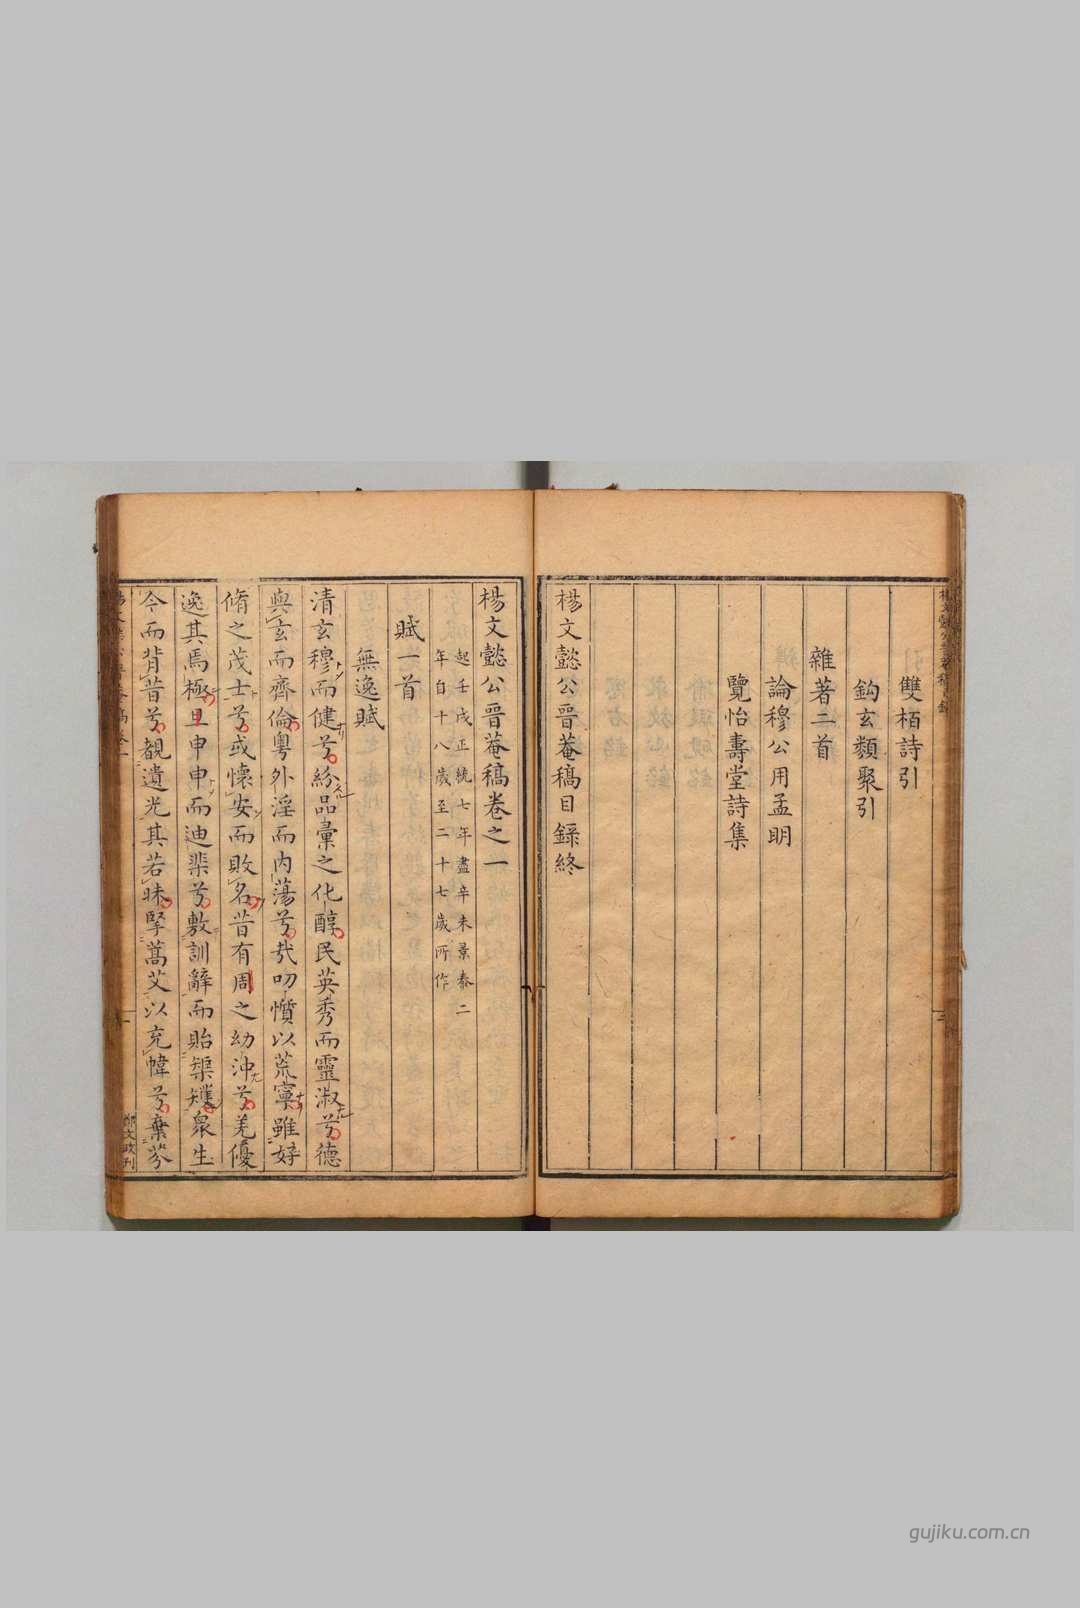 雙栢詩引
鈎玄類聚引
雜著二首
論穆公用孟明
覽怡壽堂詩集
楊文懿公晉菴稿目錄終
楊文懿公晉菴稿卷之一
起壬戌正統七年盡辛未景泰二
年自十八歲至二十七歲所作
賦一首
無逸賦
清玄穆而健兮紛品彙之化醇民英秀而靈淑兮德
與玄而齊倫粵外淫而內蕩兮哉叨憤以荒寧雖好
脩之茂士兮或懷安而敗名昔有周之幼沖兮羌優
逸其焉極旦申申而迪棐兮敷訓辭而貽榘矱衆生
今而背昔兮覩遺光其若昧掔蒿艾以充幃兮棄芬
gujiku.com.cn